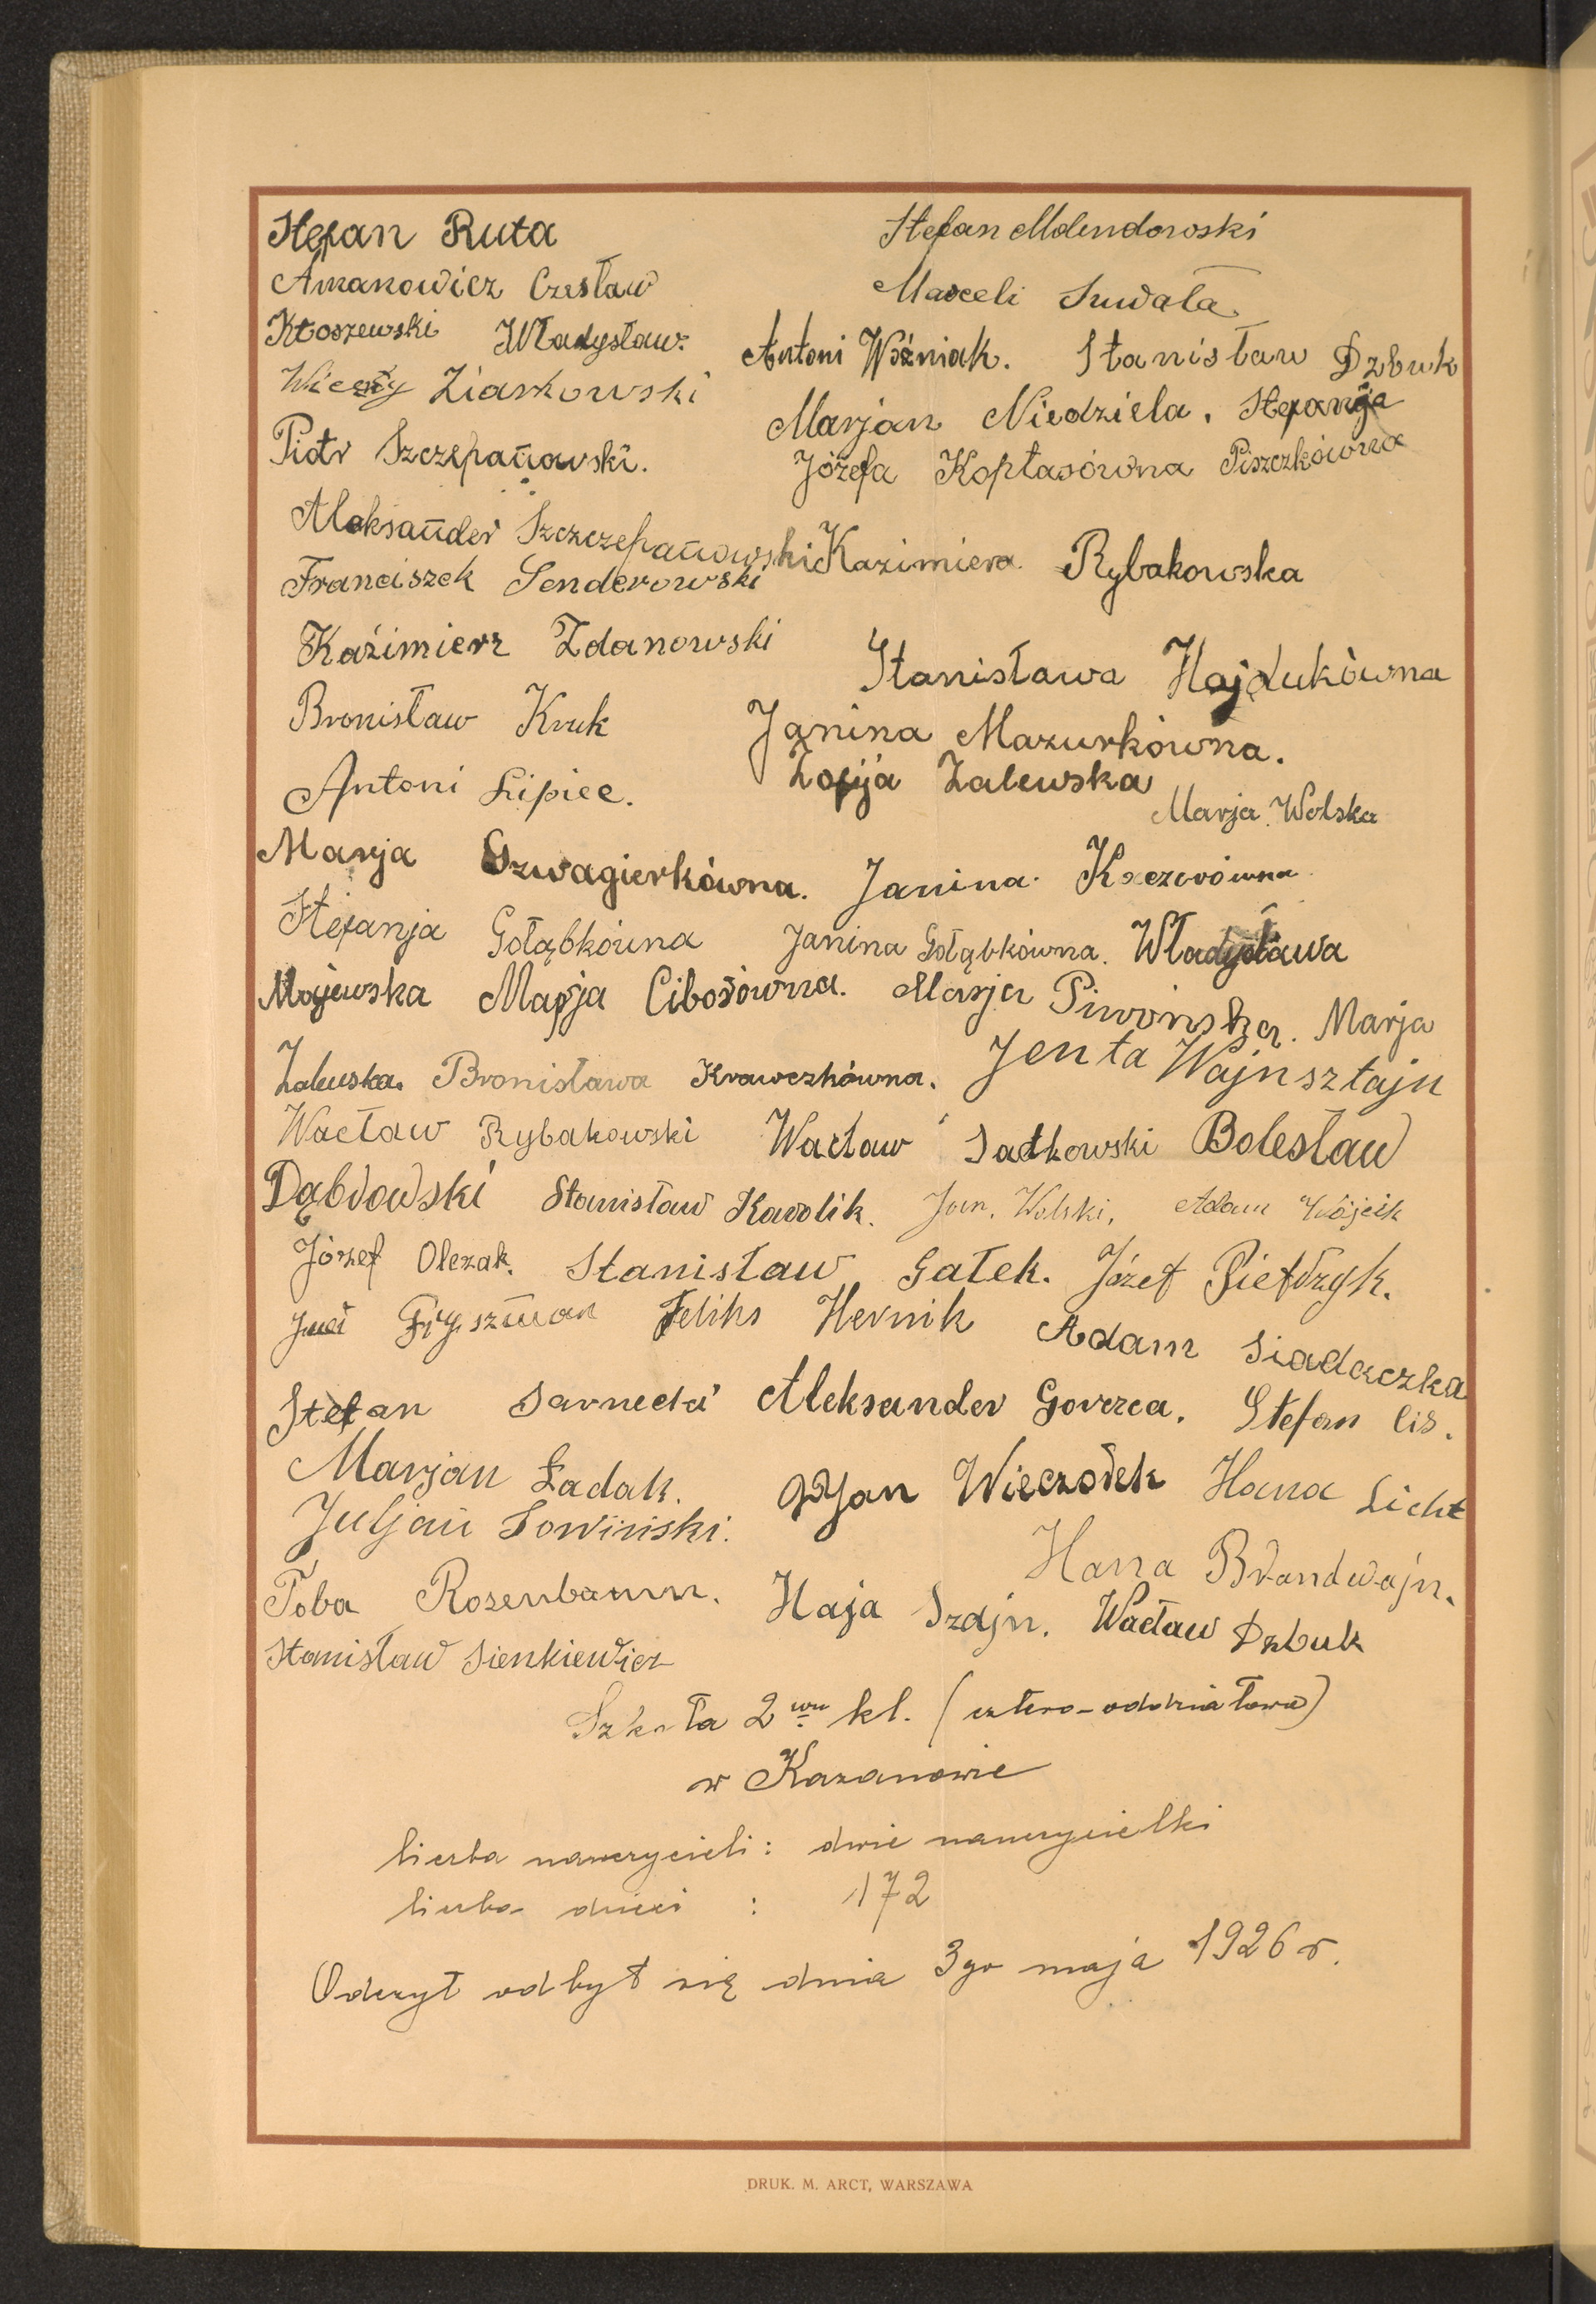 Stefan Ruta Stefan Molendowski
Amanowicz Czesław Marceli Suwała
Kłoszewski Władysław. Antoni Woźniak. Stanisław Dzbuk
Wicenty Ziarkowski Marjan Niedziela. Stefanja
Piotr Szczepanowski. Józefa Kopłasówna Piszczkówna
Aleksander Szczczepanowski Kazimiera Rybakowska
Franciszek Senderowski
Kaźimierz Zdanowski Stanisława Hajdukówna
Bronisław Kruk Janina Mazurkówna.
Antoni Lipiec. Zofija Zalewska Marja Wolska
Marja Szwagierkówna. Janina Kaczorówna
Stefanja Gołąbkówna Janina Gołąbkówna. Władysława
Majewska Marja Ciborówna. Marja Piwońska. Marja
Zalewska. Bronisława Krawczkówna. Jenta Wajnsztajn
Wacław Rybakowski Wacław Sadkowski Bolesław
Dąbrowski Stanisław Karolik. Jan. Wolski, Adam Wójcik
Józef Olczak. Stanisław Gałek. Józef Pietrzyk.
Fryszman Feliks Hernik Adam Siadaczka
Stefan Sarnecki Aleksander Gorzca. Stefan Cis.
Marjan Ładak. Jan Wieczorek Hana Licht
Juljan Łowiński. Hana Brandwajn.
Toba Rosenbaum. Haja Szdjn. Wacław Dzbuk
Stanisław Sienkiewicz
Szkoła 2 wu kl. (cztero-oddziałowa)
w Kazanowie
liczba nauczycieli: dwie nauczycielki
liczba dzieci : 172
Odczyt odbył się dnia 3go maja 1926 r.
DRUK. M. ARCT, WARSZAWA